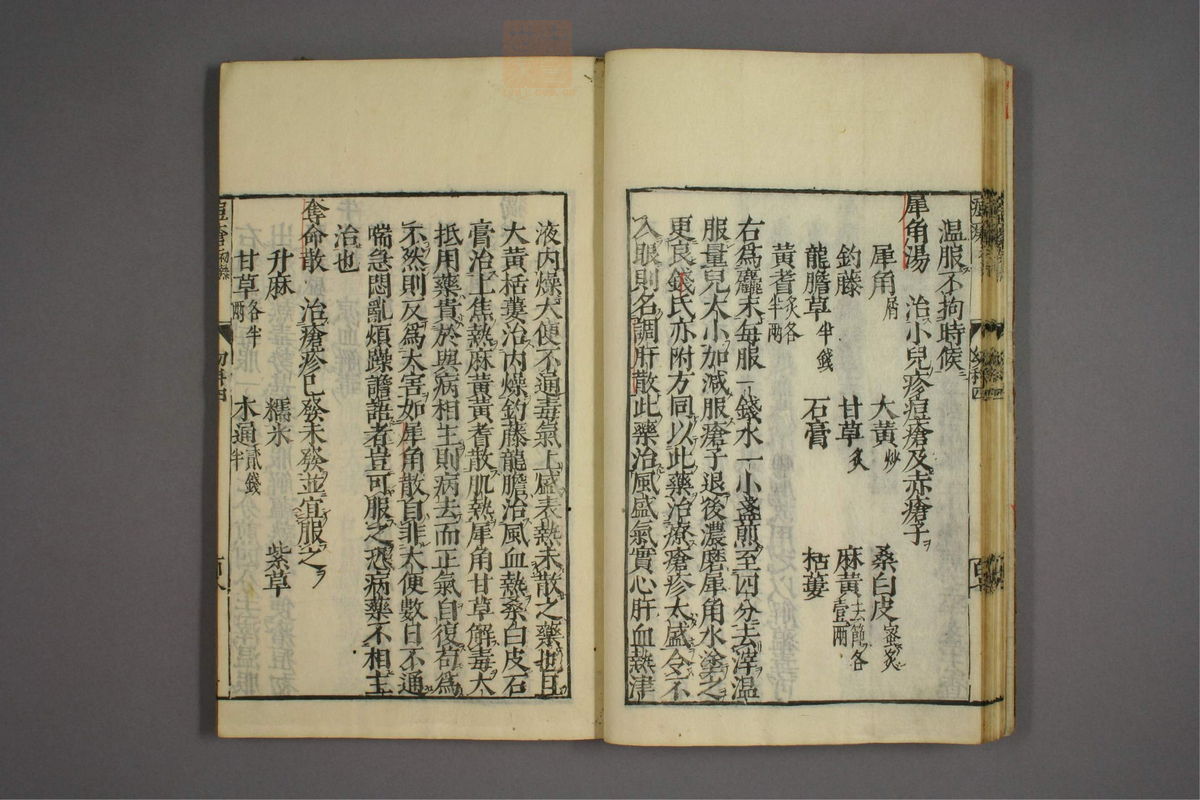 温服不拘時候
犀角湯 治小兒疹痘瘡及赤瘡子
犀角屑 大黄炒 桑白皮蜜炙
釣藤 甘草炙 麻黄去節各壹兩
龍膽草半錢 石膏 栝蔞
黄耆炙各半兩
右爲麤末每服一錢水一小盞煎至四分去滓温
服量兒大小加减服瘡子退後濃磨犀角水塗之
更良錢氏亦附方同以此藥治療瘡疹太盛令不
入眼則名調肝散此藥治風盛氣實心肝血熱津
液内燥大便不通毒氣上盛表熱未散之藥也且
大黄栝蔞治内燥釣藤龍膽治風血熱桑白皮石
膏治上焦熱麻黄黄耆散肌熱犀角甘草解毒大
抵用藥貴於與病相主則病去而正氣自復苟爲
不然則反爲大害如犀角散自非大便數日不通
喘急悶亂煩躁譫語者豈可服之恐病藥不相主
治也
奪命散 治瘡疹已發未發並宜服之
升麻 糯米 紫草
甘草各半兩 木通貳錢半